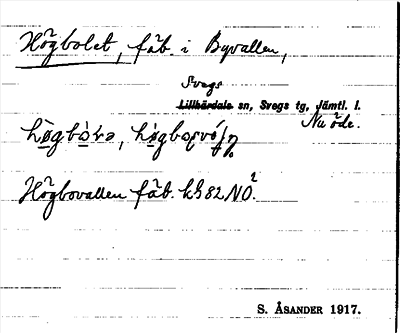 Högbolet, fäb. i Byvallen,
Svegs
Lillhärdals sn, Svegs tg, Jämtl. l.
Nu öde.
Högbovallen fäb. kB 82 NO 2.
S. ÅSANDER 1917.